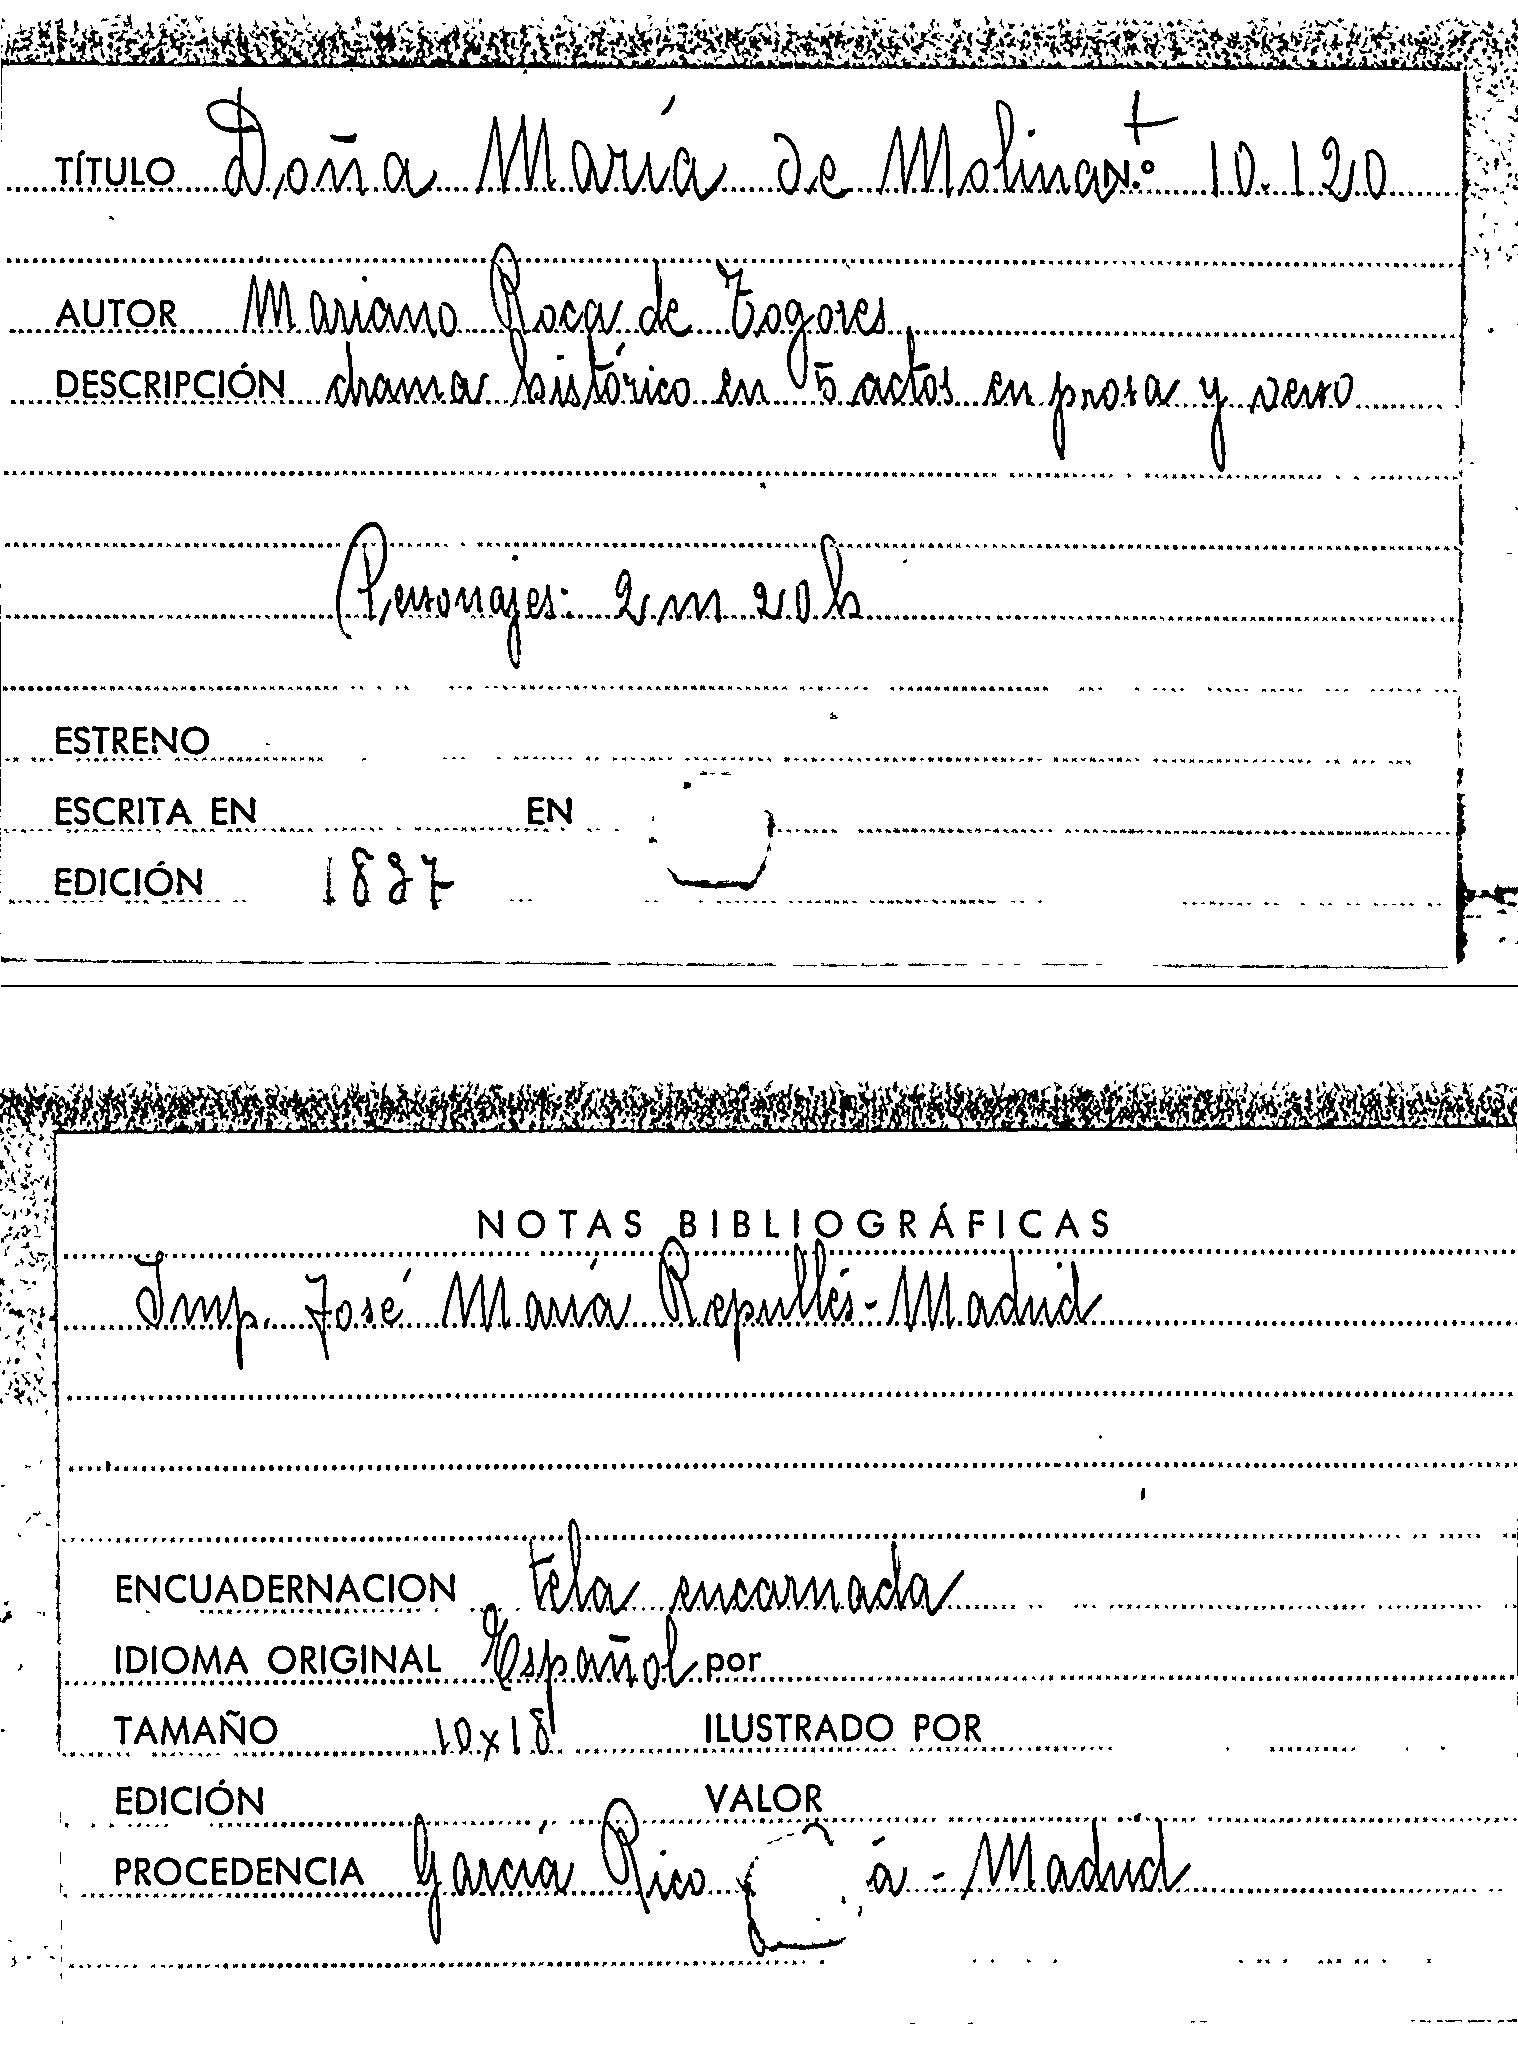 TÍTULO Doña María de Molina N.º 10.120
AUTOR Mariano Roca de Togores
DESCRIPCIÓN drama histórico en 5 actos en prosa y verso
Personajes: 2 m 20 h
ESTRENO
ESCRITA EN EN
EDICIÓN 1837
NOTAS BIBLIOGRÁFICAS
Imp. José María Repullés - Madrid
ENCUADERNACION tela encarnada
IDIOMA ORIGINAL Español por
TAMAÑO 10x18 ILUSTRADO POR
EDICIÓN VALOR
PROCEDENCIA García Rico á - Madrid